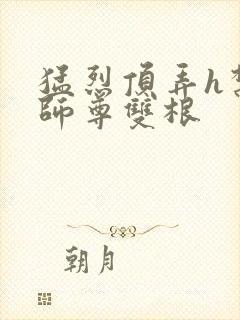 猛烈頂弄h
師尊雙根
朝月